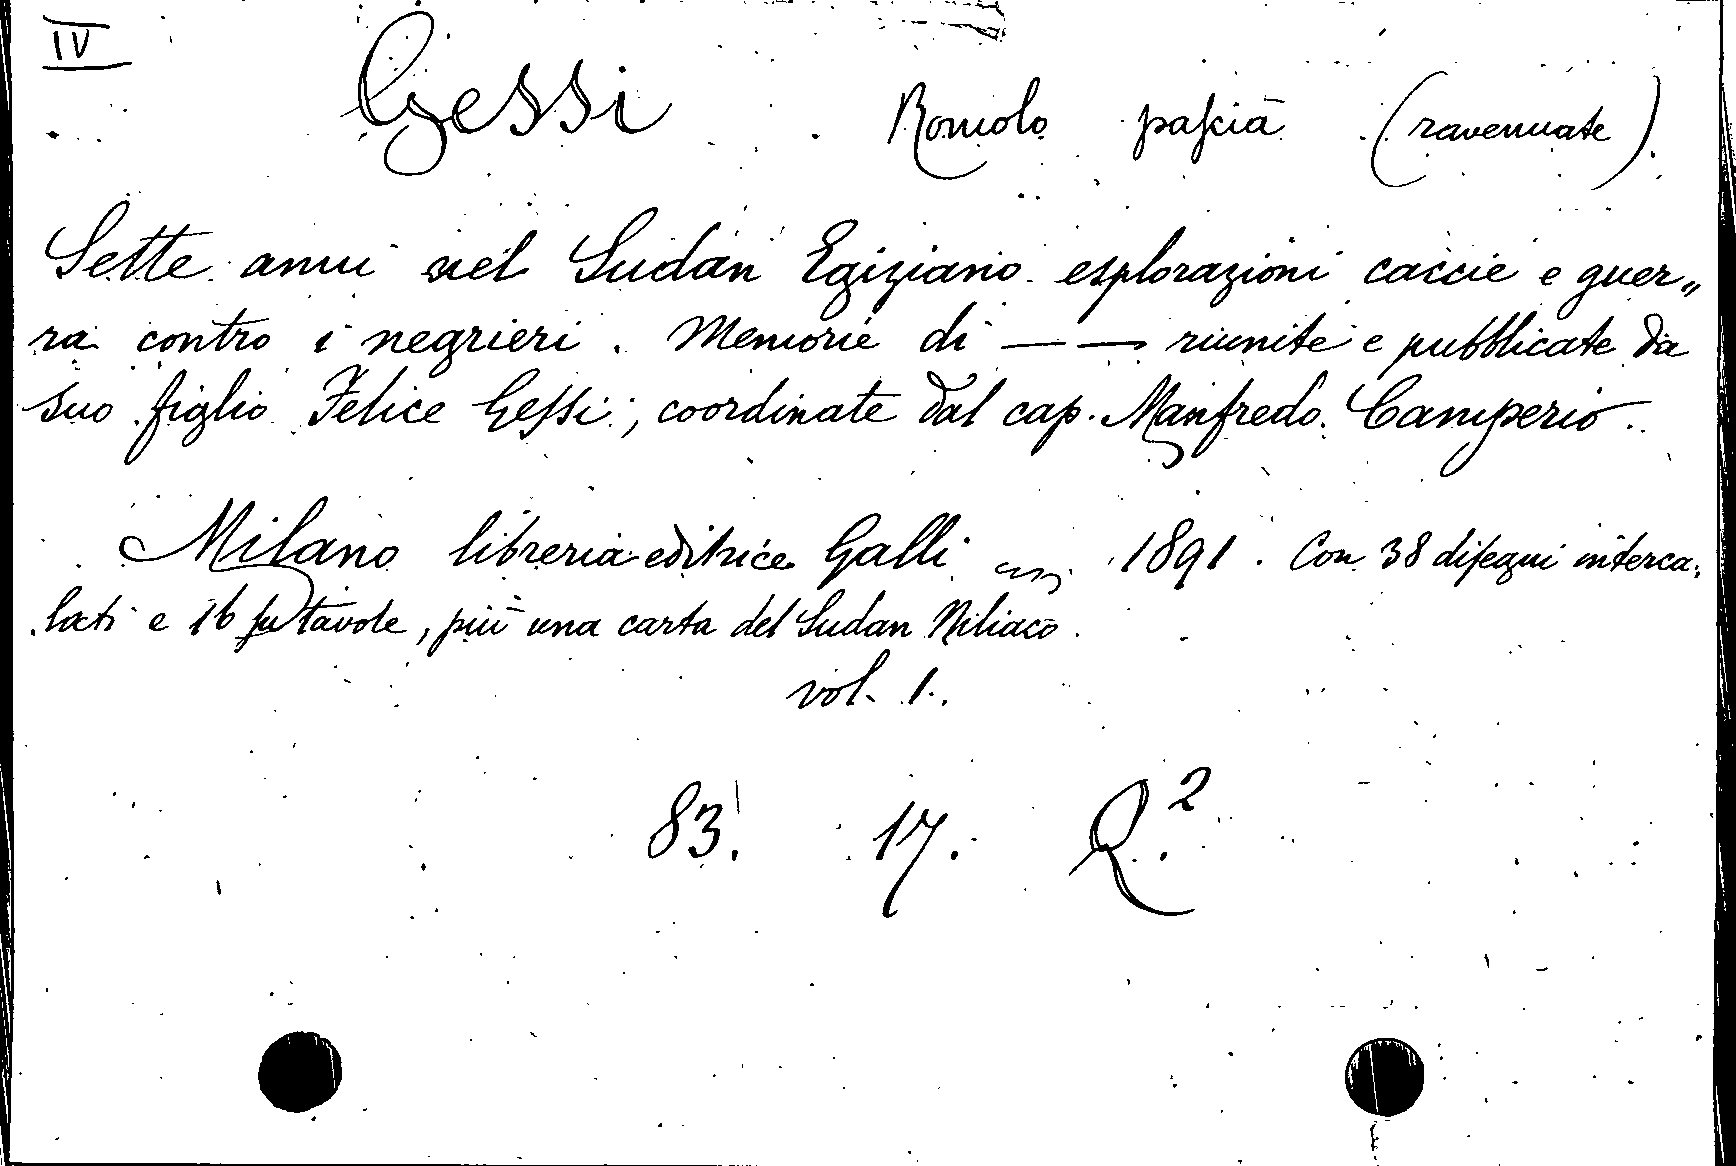 IV
Gessi Romolo pascià (ravennate)
Sette anni nel Sudan Egiziano esplorazioni caccie e guer„
ra contro i negrieri. Memorie di — — riunite e pubblicate da
suo figlio Felice Gessi, coordinate dal cap. Manfredo Camperio.
Milano libreria editrice Galli 1891. Con 38 disegni interca„
lati e 16 su tavole, più una carta del Sudan Niliaco.
vol. 1.
83. 17. Q.²